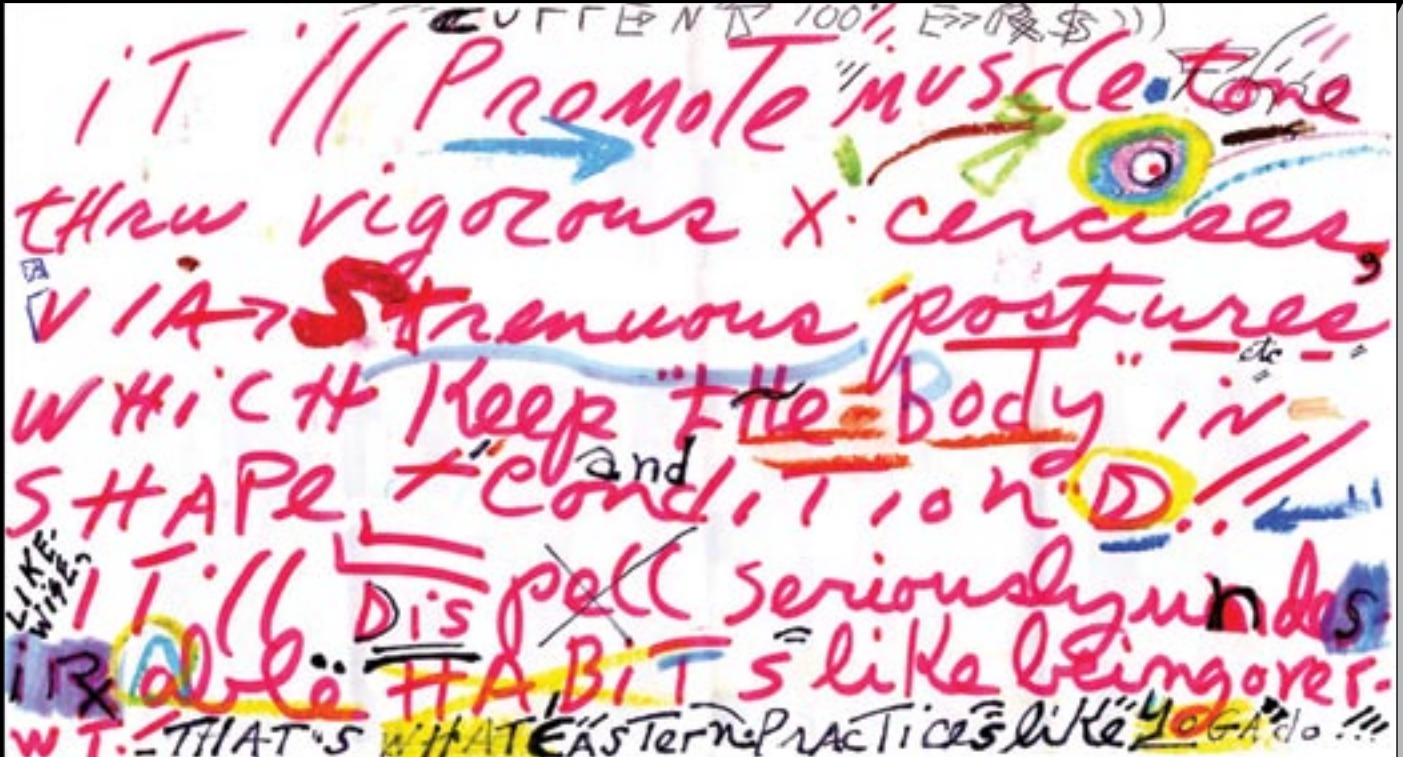 CURRENT 100%
iT'll PromoTe "muscle. tone
tHru vigorous x.cercises,
VIA> Strenuous postures
etc
WHiCH Keep "tHe = body" iN
SHAPe + "CondiTion D.!!
and
LIKE-WISE,
iT'll Dis pell seriously undes
iRable HABiTs like being over-
WT.! - THAT'S WHAT EASTern PrACTices like YOGA do!!!